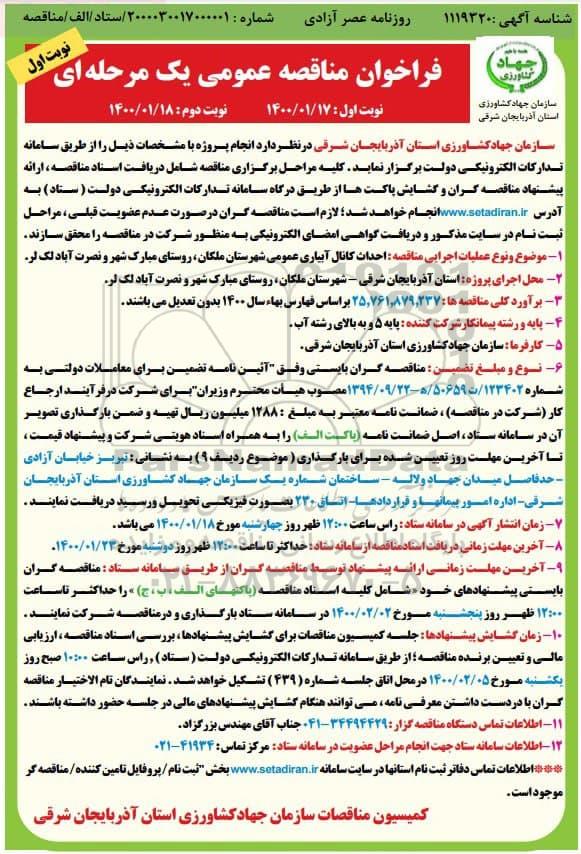 شناسه آگهی :۱۱۱۹۳۲۰
روزنامه عصر آزادی
شماره : ۲۰۰۰۰۳۰۰۱۷۰۰۰۰۰۱/ستاد/الف/مناقصه
نوبت اول
فراخوان مناقصه عمومی یک مرحله‌ای
نوبت اول : ۱۴۰۰/۰۱/۱۷ نوبت دوم : ۱۴۰۰/۰۱/۱۸
جهاد کشاورزی
سازمان جهادکشاورزی
استان آذربایجان شرقی
سازمان جهادکشاورزی استان آذربایجان شرقی درنظر دارد انجام پروژه با مشخصات ذیل را از طریق سامانه
تدارکات الکترونیکی دولت برگزار نماید . کلیه مراحل برگزاری مناقصه شامل دریافت اسناد مناقصه ، ارائه
پیشنهاد مناقصه گران و گشایش پاکت ها از طریق درگاه سامانه تدارکات الکترونیکی دولت ( ستاد ) به
آدرس www.setadiran.ir انجام خواهد شد ؛ لازم است مناقصه گران درصورت عدم عضویت قبلی ، مراحل
ثبت نام در سایت مذکور و دریافت گواهی امضای الکترونیکی به منظور شرکت در مناقصه را محقق سازند .
۱- موضوع ونوع عملیات اجرایی مناقصه : احداث کانال آبیاری عمومی شهرستان ملکان ، روستای مبارک شهر و نصرت آباد لک لر.
۲- محل اجرای پروژه : استان آذربایجان شرقی – شهرستان ملکان ، روستای مبارک شهر و نصرت آباد لک لر.
۳- برآورد کلی مناقصه ها : ۲۵,۷۶۱,۸۷۹,۲۳۷ بر اساس فهارس بهاء سال ۱۴۰۰ بدون تعدیل می باشند .
۴- پایه و رشته پیمانکار شرکت کننده : پایه ۵ و به بالای رشته آب .
۵- کارفرما : سازمان جهادکشاورزی استان آذربایجان شرقی.
۶- نوع و مبلغ تضمین : مناقصه گران بایستی وفق "آئین نامه تضمین برای معاملات دولتی به
شماره ۱۲۳۴۰۲/ت۵۰۶۵۹ه-۱۳۹۴/۰۹/۲۲مصوب هیأت محترم وزیران"برای شرکت درفرآیند ارجاع
کار (شرکت در مناقصه) ، ضمانت نامه معتبر به مبلغ : ۱۲۸۸ میلیون ریال تهیه و ضمن بارگذاری تصویر
آن در سامانه ستاد ، اصل ضمانت نامه (پاکت الف) را به همراه اسناد هویتی شرکت و پیشنهاد قیمت ،
تا آخرین مهلت روز تعیین شده برای بارگذاری ( موضوع ردیف ۹ ) به نشانی : تبریز خیابان آزادی
-حدفاصل میدان جهاد ولاله – ساختمان شماره یک سازمان جهاد کشاورزی استان آذربایجان
شرقی- اداره امور پیمانها و قراردادها- اتاق ۲۳۰ بصورت فیزیکی تحویل و رسید دریافت نمایند .
۷- زمان انتشار آگهی در سامانه ستاد : راس ساعت ۱۲:۰۰ ظهر روز چهارشنبه مورخ ۱۴۰۰/۰۱/۱۸ می باشد .
۸- آخرین مهلت زمانی دریافت اسناد مناقصه از سامانه ستاد : حداکثر تا ساعت ۱۲:۰۰ ظهر روز دوشنبه مورخ ۱۴۰۰/۰۱/۲۳.
۹- آخرین مهلت زمانی ارائه پیشنهاد توسط مناقصه گران از طریق سامانه ستاد : مناقصه گران
بایستی پیشنهادهای خود «شامل کلیه اسناد مناقصه (پاکتهای الف ، ب ، ج) » را حداکثر تاساعت
۱۲:۰۰ ظهر روز پنجشنبه مورخ ۱۴۰۰/۰۲/۰۲ در سامانه ستاد بارگذاری و درمناقصه شرکت نمایند .
۱۰- زمان گشایش پیشنهادها : جلسه کمیسیون مناقصات برای گشایش پیشنهادها ، بررسی اسناد مناقصه ، ارزیابی
مالی و تعیین برنده مناقصه ؛ از طریق سامانه تدارکات الکترونیکی دولت ( ستاد ) , راس ساعت ۱۰:۰۰ صبح روز
یکشنبه مورخ ۱۴۰۰/۰۲/۰۵ درمحل اتاق جلسه شماره ( ۴۳۹ ) تشکیل خواهد شد . نمایندگان تام الاختیار مناقصه
گران با دردست داشتن معرفی نامه ، می توانند هنگام گشایش پیشنهادهای مالی در جلسه حضور داشته باشند .
۱۱- اطلاعات تماس دستگاه مناقصه گزار : ۳۴۴۹۴۴۲۹-۰۴۱ جناب آقای مهندس بزرگزاد.
۱۲- اطلاعات سامانه ستاد جهت انجام مراحل عضویت در سامانه ستاد : مرکز تماس : ۴۱۹۳۴-۰۲۱
***اطلاعات تماس دفاتر ثبت نام استانها در سایت سامانه www.setadiran.ir بخش "ثبت نام / پروفایل تامین کننده / مناقصه گر
موجود است .
کمیسیون مناقصات سازمان جهادکشاورزی استان آذربایجان شرقی
ParsNamadData
۰۲۱-۸۸۳۴۹۶۷۰-۵